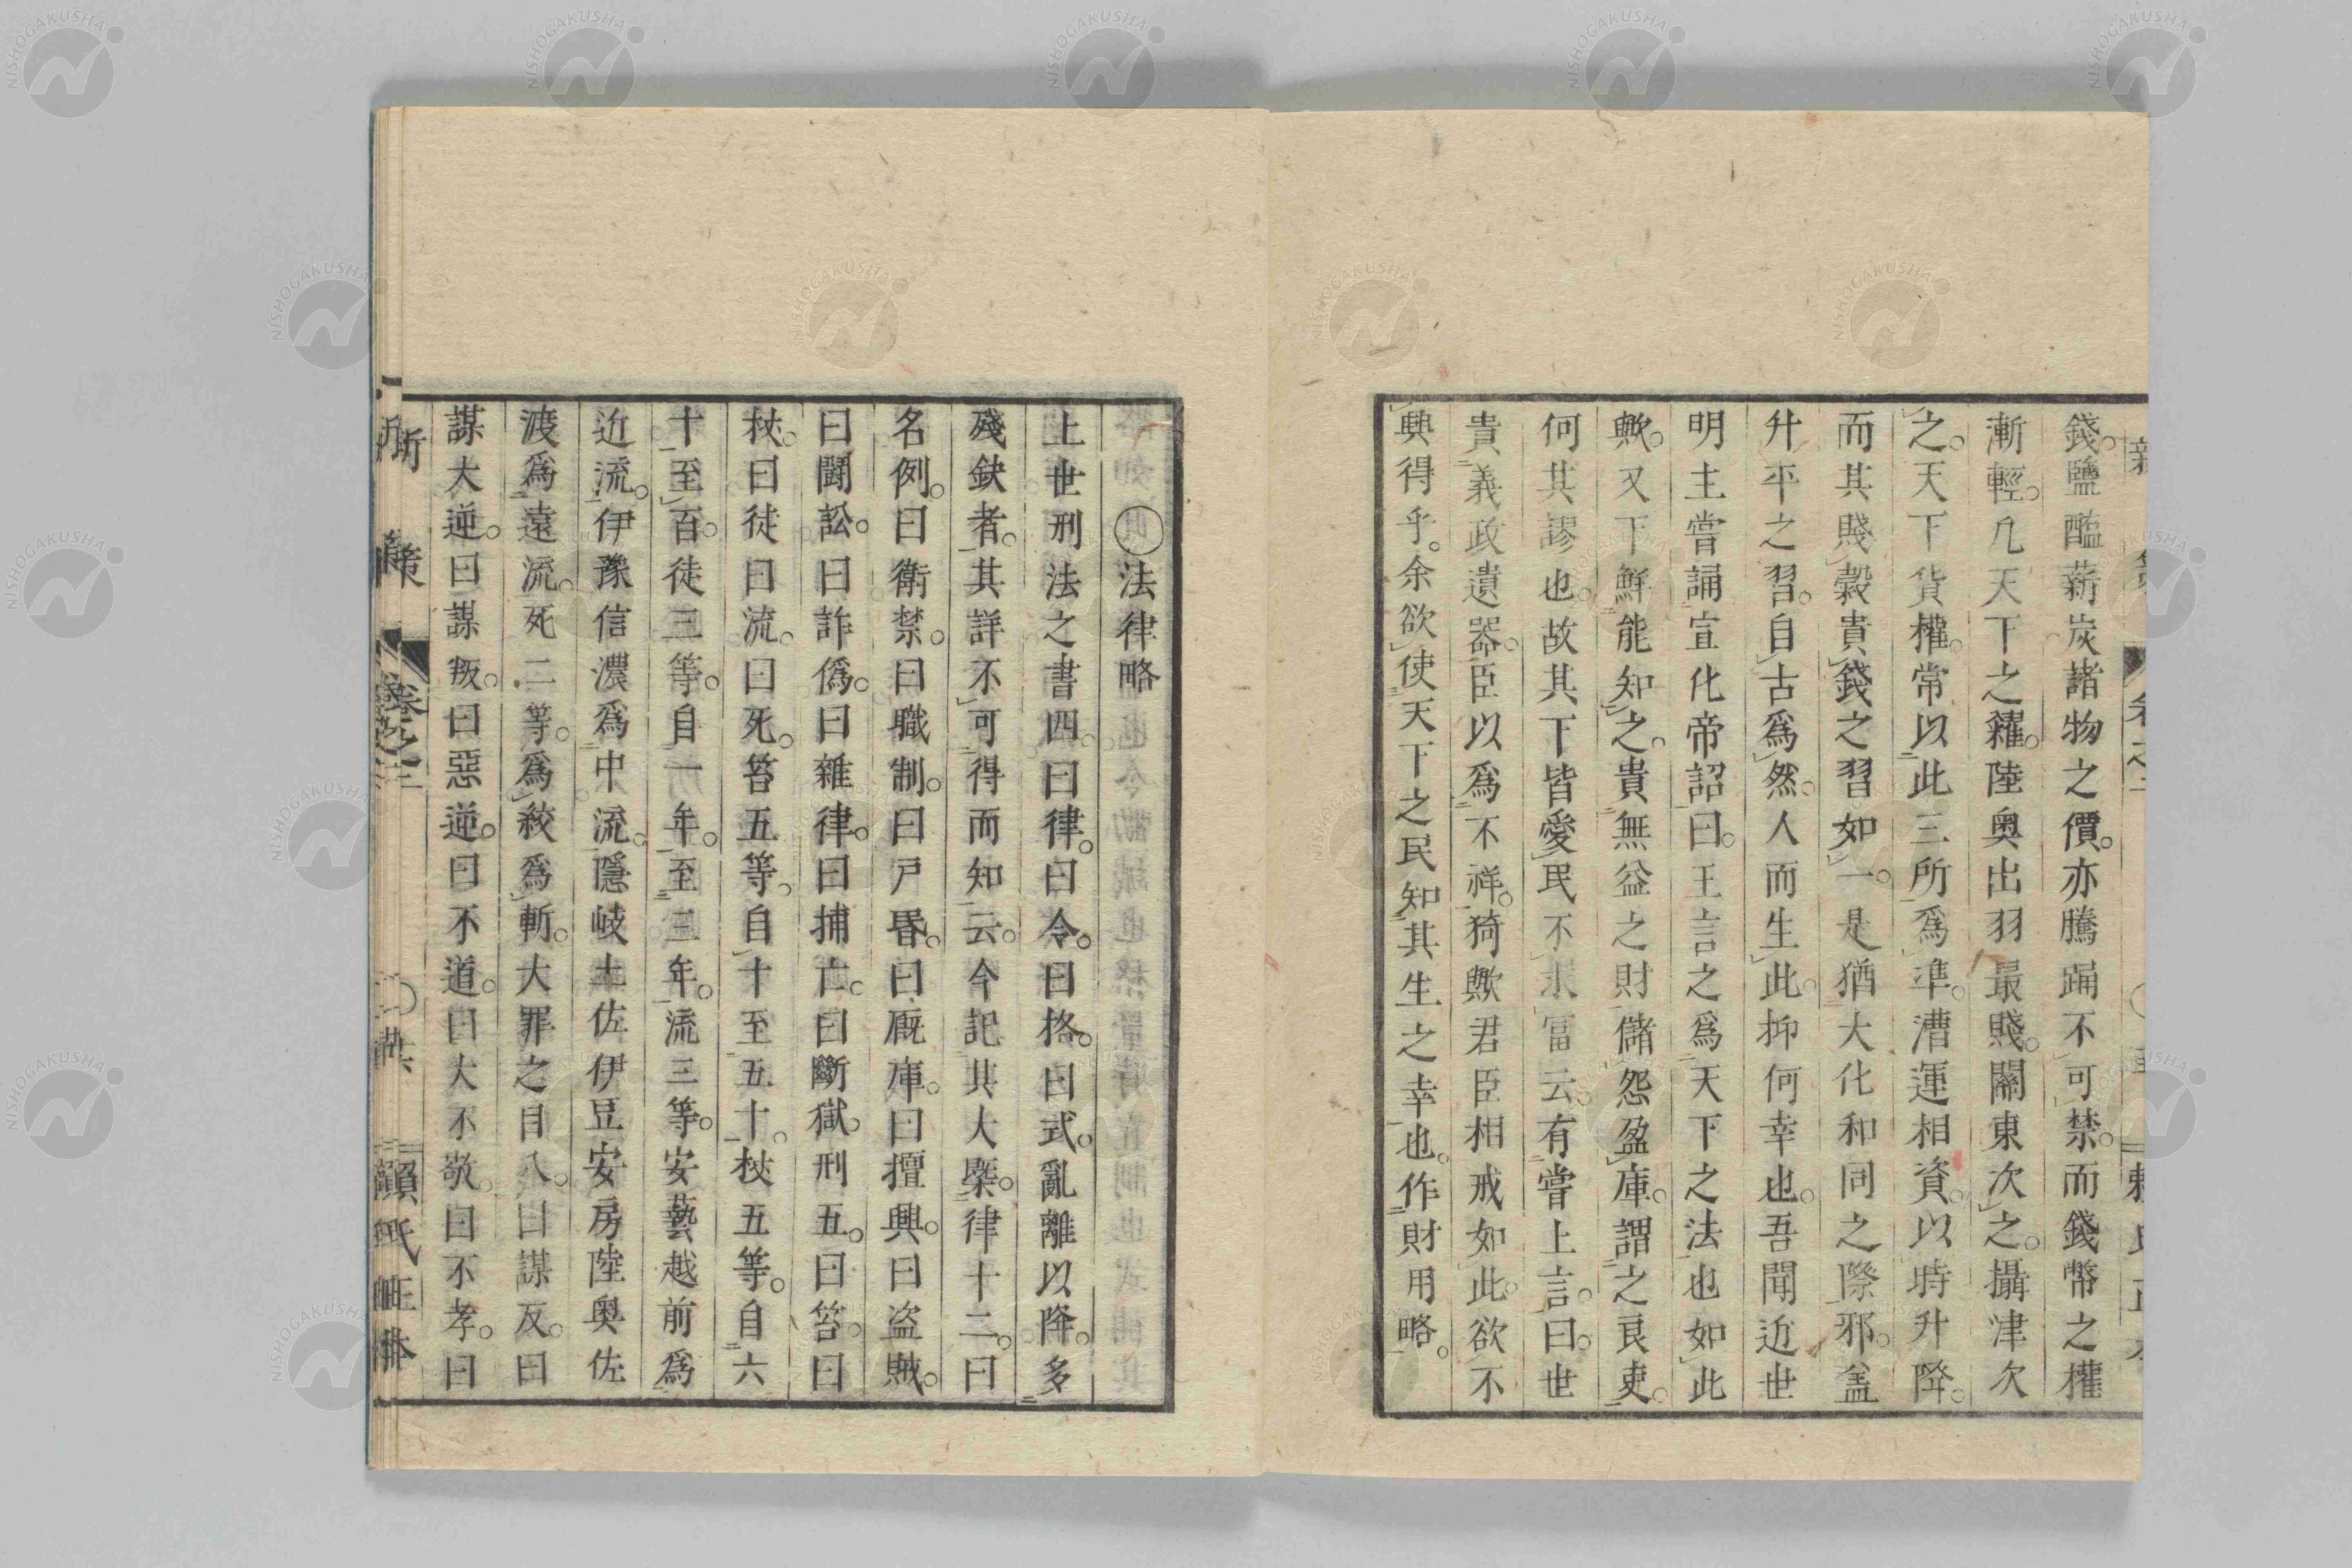 錢。鹽醢薪炭諸物之價。亦騰踊不可禁。而錢幣之權
漸輕。凡天下之糴。陸奧出羽最賤。關東次之。攝津次
之。天下貨權。常以此三所爲準。漕運相資。以時升降。
而其賤穀貴錢之習如一。是猶大化和同之際邪。盖
升平之習。自古爲然。人而生此。抑何幸也。吾聞近世
明主嘗誦宣化帝詔曰。王言之爲天下之法也如此
歟。又下鮮能知之。貴無益之財。儲怨盈庫。謂之良吏。
何其謬也。故其下皆愛民不求富云。有嘗上言。曰。世
貴義政遺器。臣以爲不祥。猗歟君臣相戒如此。欲不
興得乎。余欲使天下之民知其生之幸也。作財用略。
○法律略
上世刑法之書四。曰律。曰令。曰格。曰式。亂離以降。多
殘缺者。其詳不可得而知云。今記其大槩。律十二。曰
名例。曰衛禁。曰職制。曰戸昬。曰廐庫。曰擅興。曰盗賊。
曰鬪訟。曰詐僞。曰雜律。曰捕亡。曰斷獄。刑五。曰笞。曰
杖。曰徒。曰流。曰死。笞五等。自十至五十。杖五等。自六
十至百。徒三等。自一年。至三年。流三等。安藝越前爲
近流。伊豫信濃爲中流。隱岐土佐伊豆安房陸奥佐
渡爲遠流。死二等。爲絞爲斬。大罪之目八。曰謀反。曰
謀大逆。曰謀叛。曰惡逆。曰不道。曰大不敬。曰不孝。曰
新策
卷之三
賴氏正本
NISHOGAKUSHA